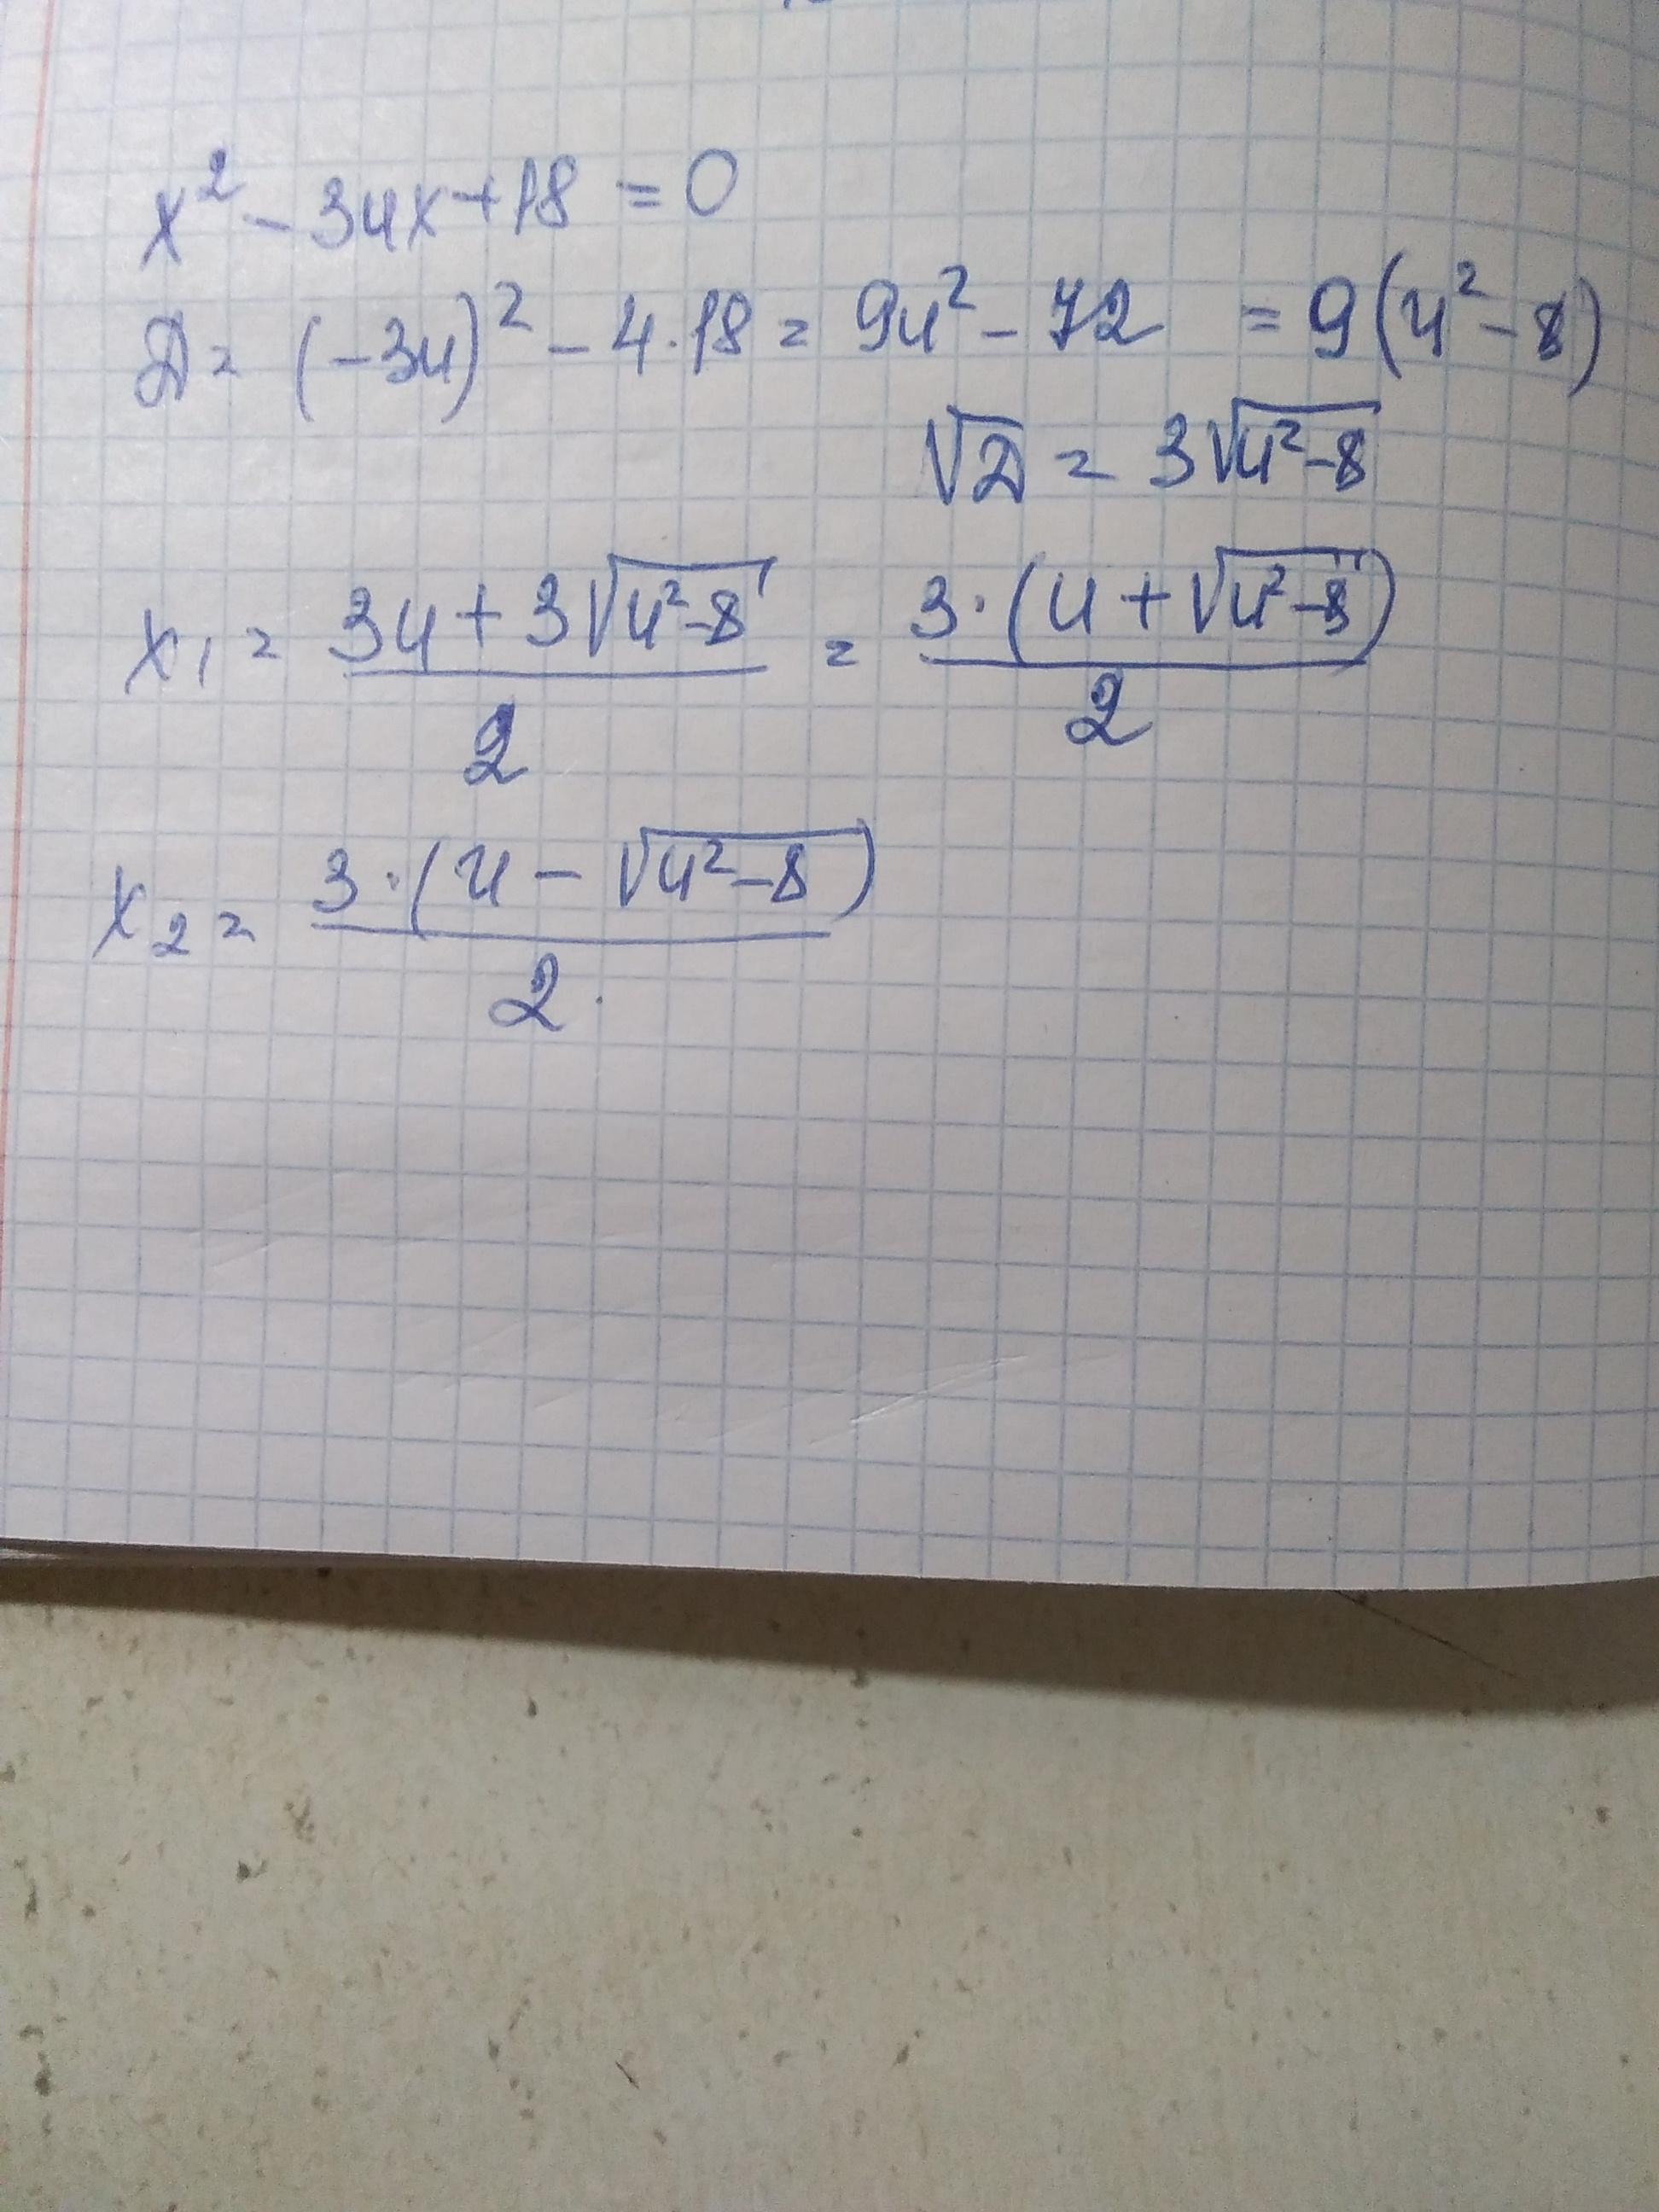 x² - 3ux + 18 = 0
D = (-3u)² - 4·18 = 9u² - 72 = 9(u² - 8)
√D = 3√(u²-8)
x₁ = (3u + 3√(u²-8))/2 = (3·(u + √(u²-8)))/2
x₂ = (3·(u - √(u²-8)))/2